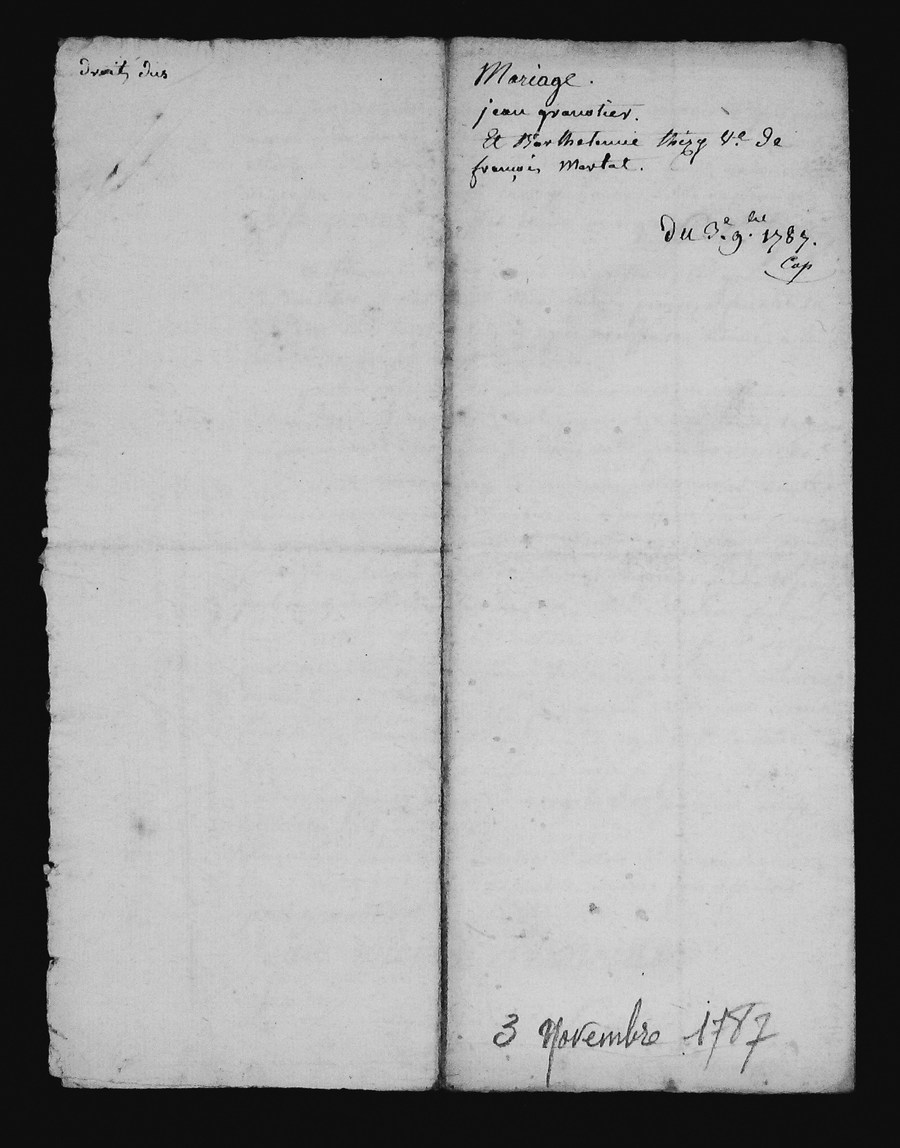 droits dus
Mariage.
jean granotier.
Et Barthelemie thizy Ve. de
françois Mortal.
Du 3e. 9bre. 1787.
Cop
3 Novembre 1787